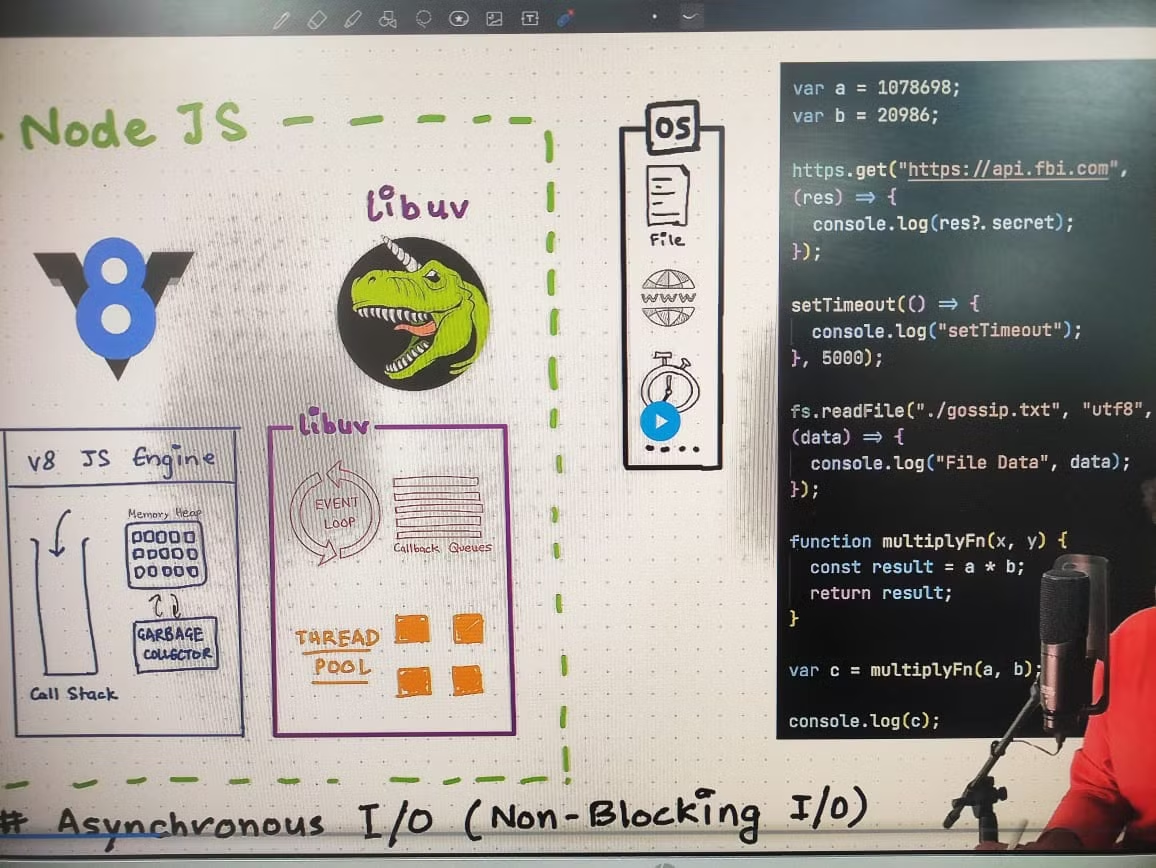 Node JS
libuv
8
V8 JS Engine
Memory Heap
GARBAGE
COLLECTOR
Call Stack
libuv
EVENT
LOOP
Callback Queues
THREAD
POOL
OS
File
WWW
var a = 1078698;
var b = 20986;
https.get("https://api.fbi.com",
(res) => {
console.log(res?.secret);
});
setTimeout(() => {
console.log("setTimeout");
}, 5000);
fs.readFile("./gossip.txt", "utf8",
(data) => {
console.log("File Data", data);
});
function multiplyFn(x, y) {
const result = a * b;
return result;
}
var c = multiplyFn(a, b);
console.log(c);
# Asynchronous I/O (Non-Blocking I/O)